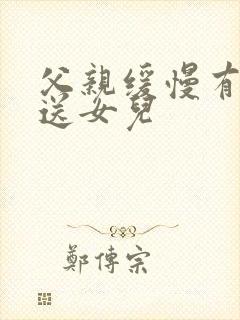 父親缓慢有
送女兒
鄭傳宗